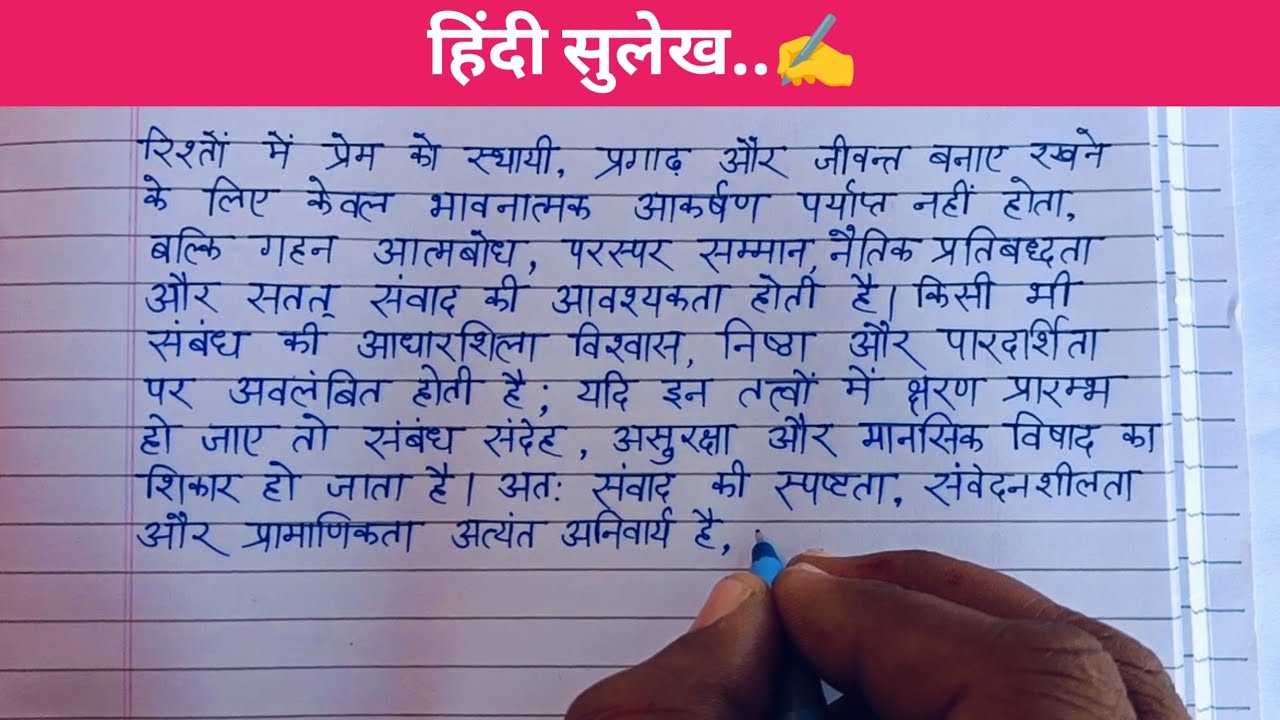 हिंदी सुलेख..✍️
रिश्तों में प्रेम को स्थायी, प्रगाढ़ और जीवन्त बनाए रखने
के लिए केवल भावनात्मक आकर्षण पर्याप्त नहीं होता,
बल्कि गहन आत्मबोध, परस्पर सम्मान, नैतिक प्रतिबध्दता
और सतत् संवाद की आवश्यकता होती है। किसी भी
संबंध की आधारशिला विश्वास, निष्ठा और पारदर्शिता
पर अवलंबित होती है; यदि इन तत्वों में क्षरण प्रारम्भ
हो जाए तो संबंध संदेह, असुरक्षा और मानसिक विषाद का
शिकार हो जाता है। अतः संवाद की स्पष्टता, संवेदनशीलता
और प्रामाणिकता अत्यंत अनिवार्य है,